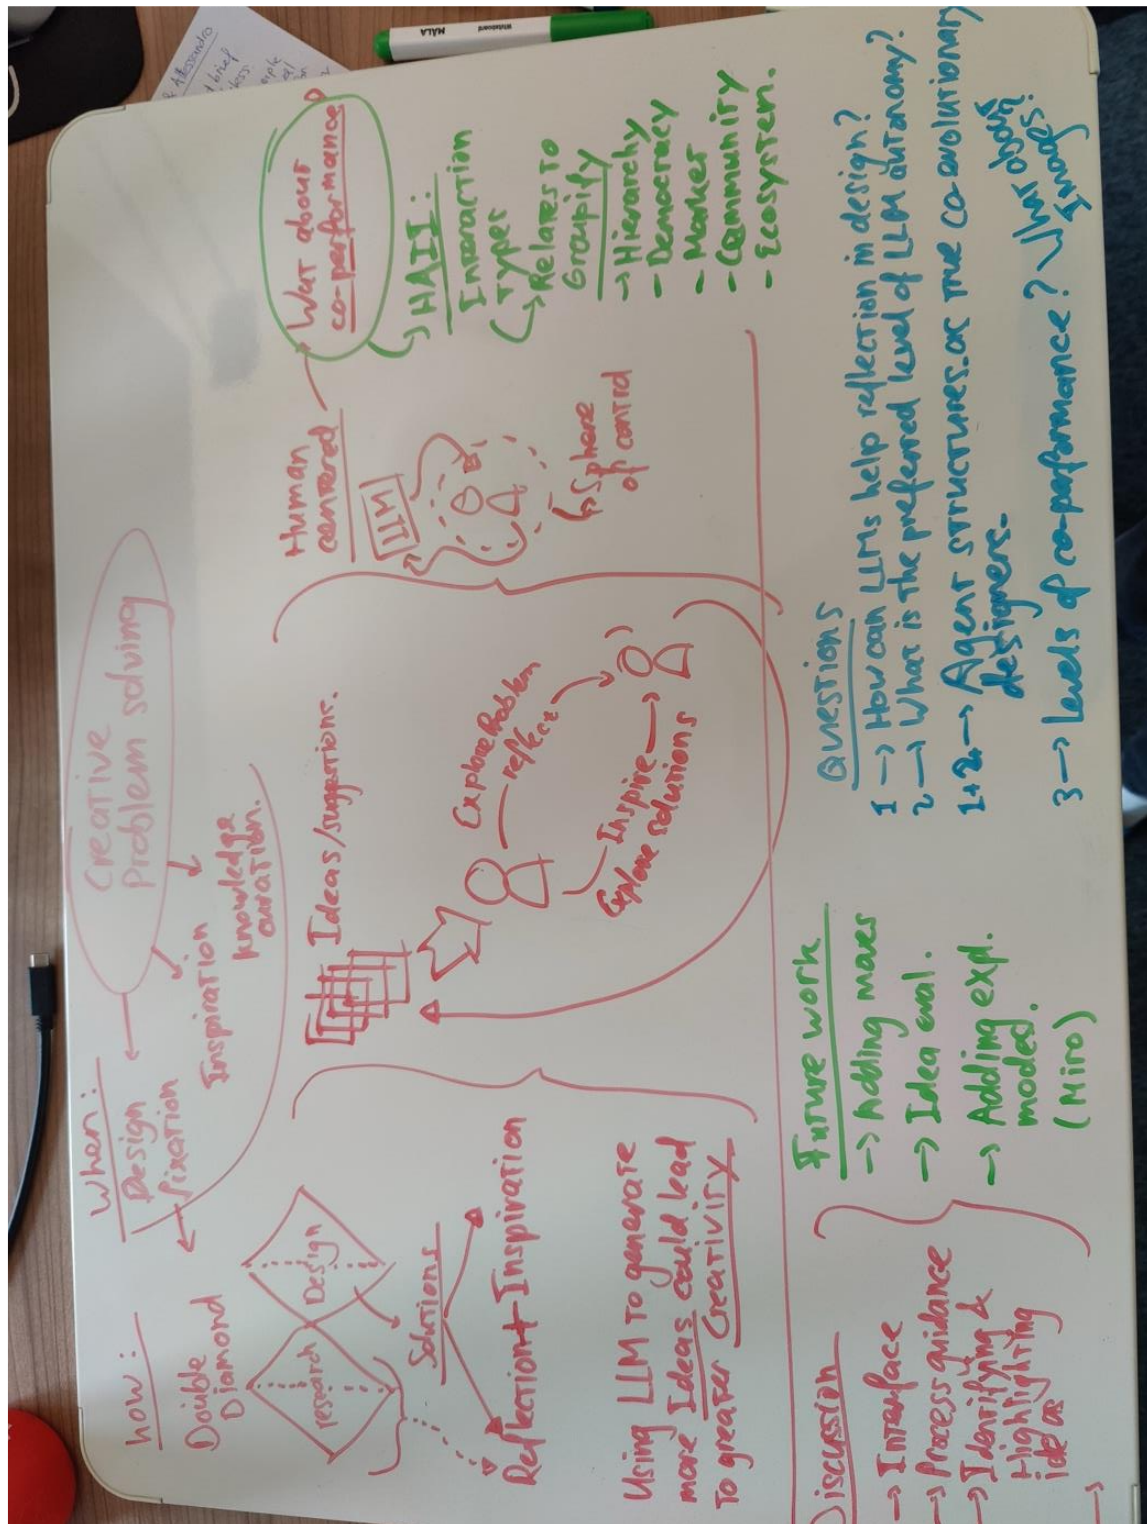 Creative
Problem solving
When:
Design
fixation
Inspiration
knowledge
curation.
how:
Double
Diamond
research
Design
Solutions
Reflection + Inspiration
Using LLM to generate
more Ideas could lead
to greater Creativity
Ideas/suggestions.
Explore Problem
reflect
Inspire
Explore solutions
Human
centered
LLM
Sphere
of control
Wat about
co-performance?
HAII:
Interaction
types
Relates to
Groupify
→ Hierarchy
- Democracy
- Market
- Community
- Ecosystem.
Discussion
→ Interface
→ Process guidance
→ Identifying &
Highlighting
ideas
→
Future work
→ Adding
→ Idea eval.
→ Adding expl.
modes.
(Miro)
Questions
1 → How can LLMs help reflection in design?
2 → What is the preferred level of LLM autonomy?
1+2 → Agent structures as true co evolutionary
designers.
3 → Levels of co-performance? What about
Images?
MÅLA
Whiteboard
Alessandro
brief